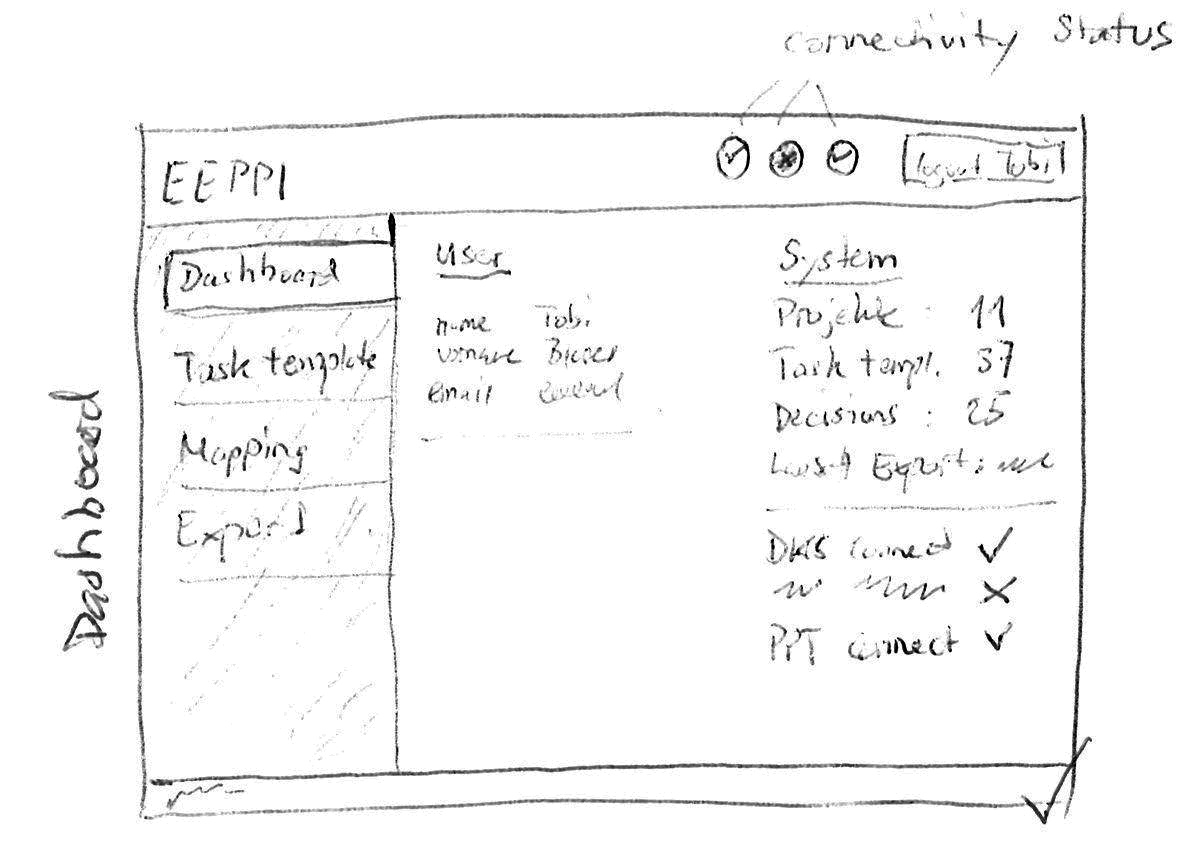 connectivity Status
EEPPI
logout Tobi
Dashboard
Task template
Mapping
Export
User
name Tobi
vorname
email
System
Projekte : 11
Task templ. 37
Decisions : 25
Last Export :
DKS connect ✓
✗
PPT connect ✓
Dashboard